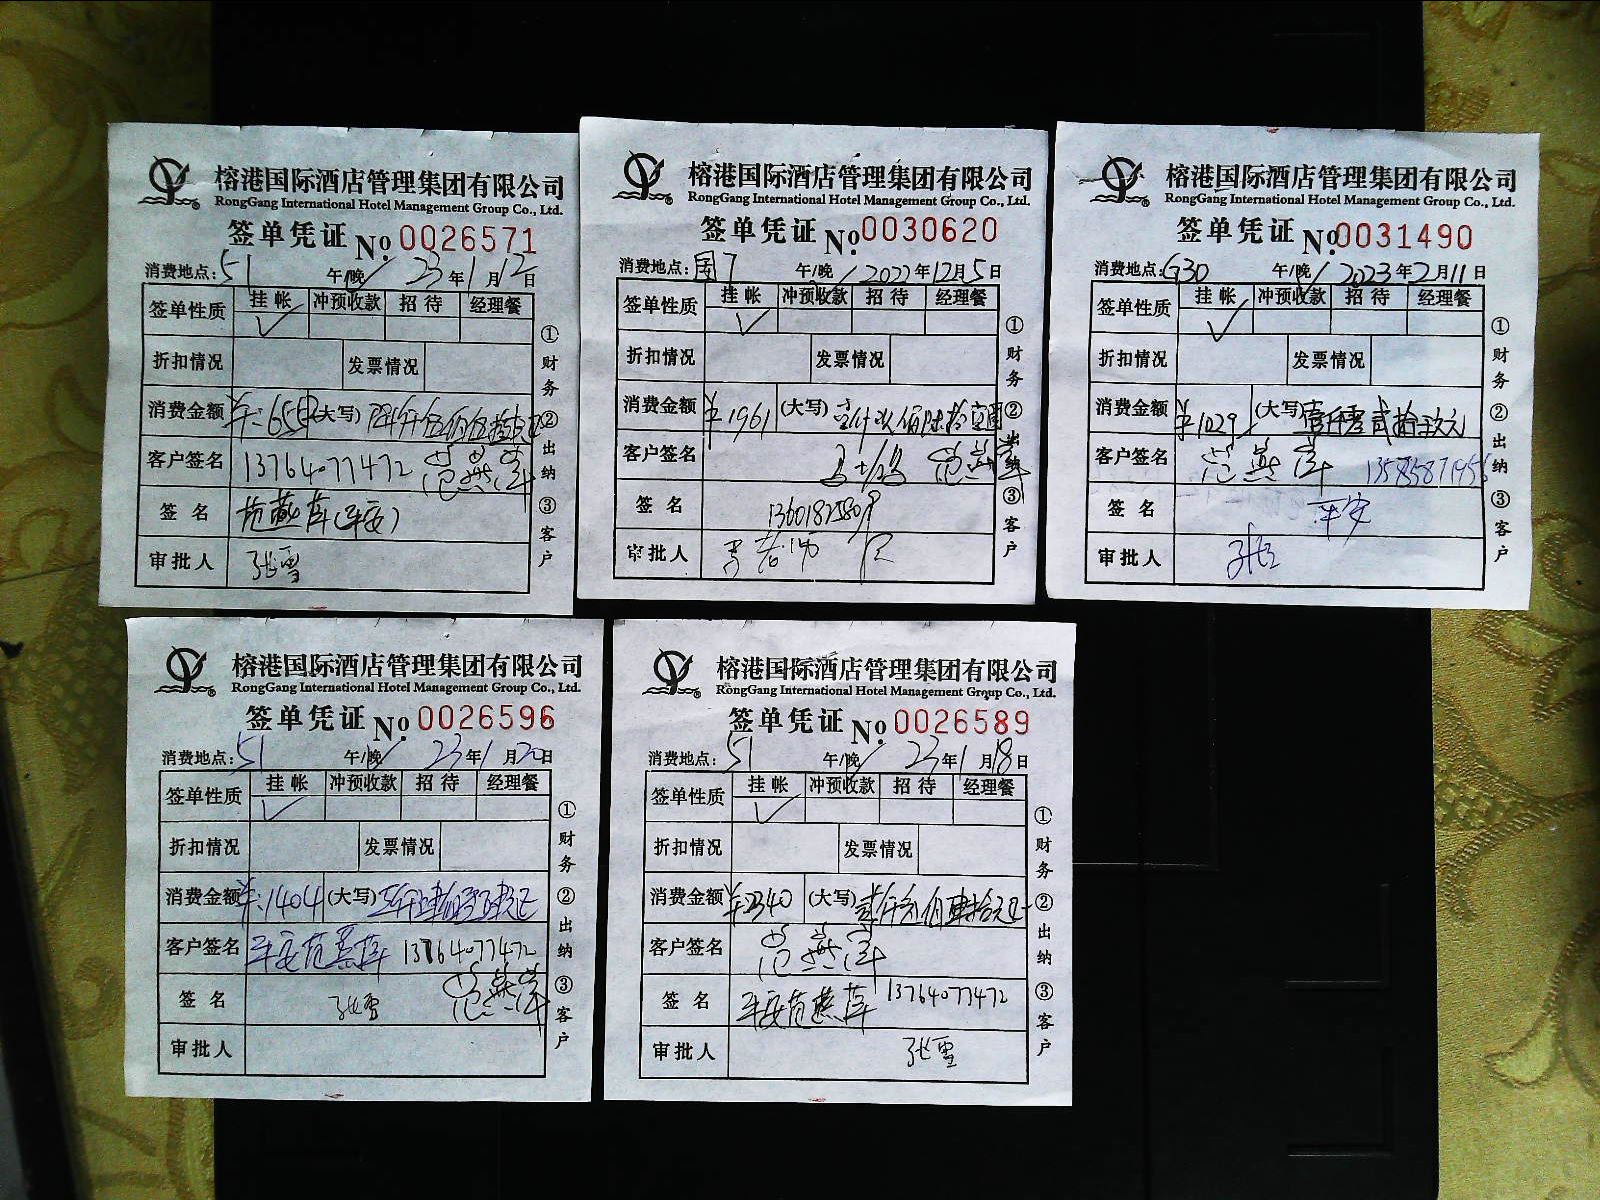 榕港国际酒店管理集团有限公司
RongGang International Hotel Management Group Co., Ltd.
签单凭证 No. 0026571
消费地点: 51 午/晚 23年1月12日
签单性质 挂帐 冲预收款 招待 经理餐
√
折扣情况 发票情况
消费金额 (大写)
客户签名 13764077472 范燕萍
签名 范燕萍(平安)
审批人 张雪
①财务 ②出纳 ③客户
榕港国际酒店管理集团有限公司
RongGang International Hotel Management Group Co., Ltd.
签单凭证 No. 0030620
消费地点: 国7 午/晚 2022年12月5日
签单性质 挂帐 冲预收款 招待 经理餐
√
折扣情况 发票情况
消费金额 ¥1961 (大写)
客户签名 范燕萍
签名
审批人
①财务 ②出纳 ③客户
榕港国际酒店管理集团有限公司
RongGang International Hotel Management Group Co., Ltd.
签单凭证 No. 0031490
消费地点: G30 午/晚 2023年2月11日
签单性质 挂帐 冲预收款 招待 经理餐
√
折扣情况 发票情况
消费金额 ¥1029 (大写) 壹仟零贰拾玖元
客户签名 范燕萍
签名 平安
审批人
①财务 ②出纳 ③客户
榕港国际酒店管理集团有限公司
RongGang International Hotel Management Group Co., Ltd.
签单凭证 No. 0026596
消费地点: 51 午/晚 23年1月20日
签单性质 挂帐 冲预收款 招待 经理餐
√
折扣情况 发票情况
消费金额 ¥:1404 (大写)
客户签名 平安范燕萍 13764077472
签名 张雪 范燕萍
审批人
①财务 ②出纳 ③客户
榕港国际酒店管理集团有限公司
RongGang International Hotel Management Group Co., Ltd.
签单凭证 No. 0026589
消费地点: 51 午/晚 23年1月18日
签单性质 挂帐 冲预收款 招待 经理餐
√
折扣情况 发票情况
消费金额 ¥:2340 (大写) 贰仟叁佰肆拾元正
客户签名 范燕萍
签名 平安范燕萍 13764077472
审批人 张雪
①财务 ②出纳 ③客户